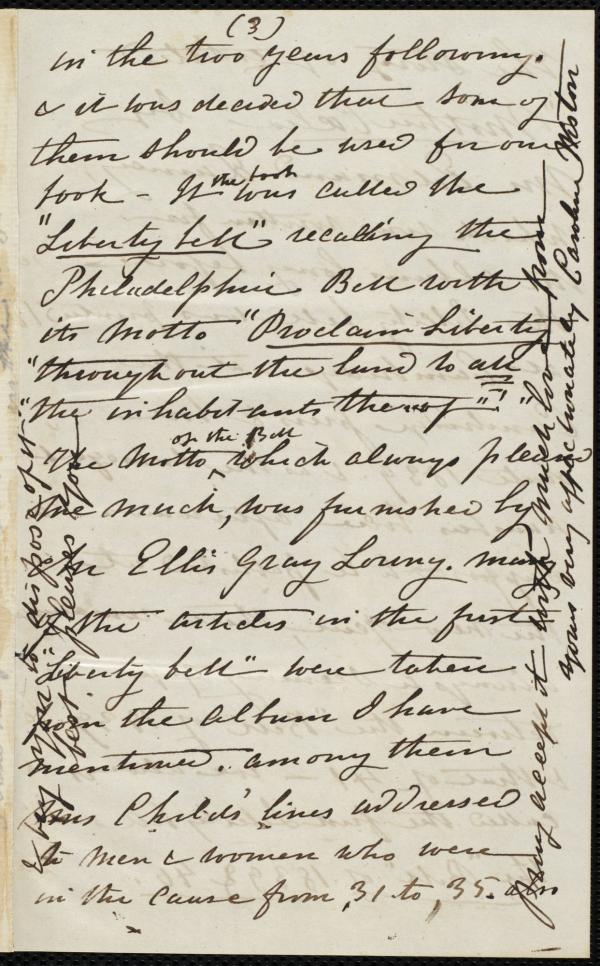 (3)
in the two years following.
& it was decided that som of
them should be used for our
book - It the book was called the
"Liberty bell" recalling the
Philadelphia Bell with
its motto "Proclaim Liberty
"throughout the land to all
"the inhabitants thereof"! "
The motto on the Bell which always pleased
me much, was furnished by
Mr Ellis Gray Loring. many
of the articles in the first
"Liberty bell" were taken
from the album I have
mentioned. among them
Mrs Child's lines addressed
to men & women who were
in the cause from 31. to, 35. also
& beg you to dispose of it
as best pleases you
Pray accept it with much love from
yours very affectionately Caroline Weston